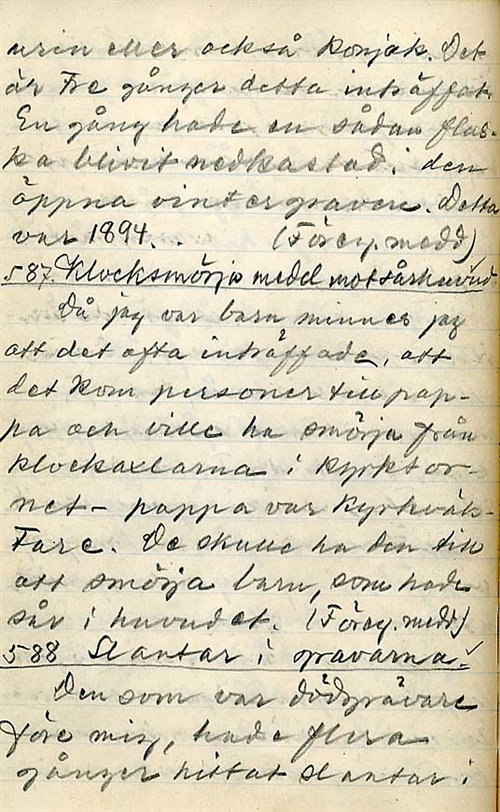 urin eller också konjak. Det
är tre gånger detta inträffat.
En gång hade en sådan flas-
ka blivit nedkastad i den
öppna vintergraven. Detta
var 1894. . (Föreg. medd)
587. Klocksmörja medel mot sårhuvud.
Då jag var barn minnes jag
att det ofta inträffade, att
det kom personer till pap-
pa och ville ha smörja från
klockaxlarna i kyrktor-
net - pappa var kyrkväk-
tare. De skulle ha den till
att smörja barn, som hade
sår i huvudet. (Föreg. medd)
588 Slantar i gravarna.
Den som var dödgrävare
före mig, hade flera
gånger hittat slantar i